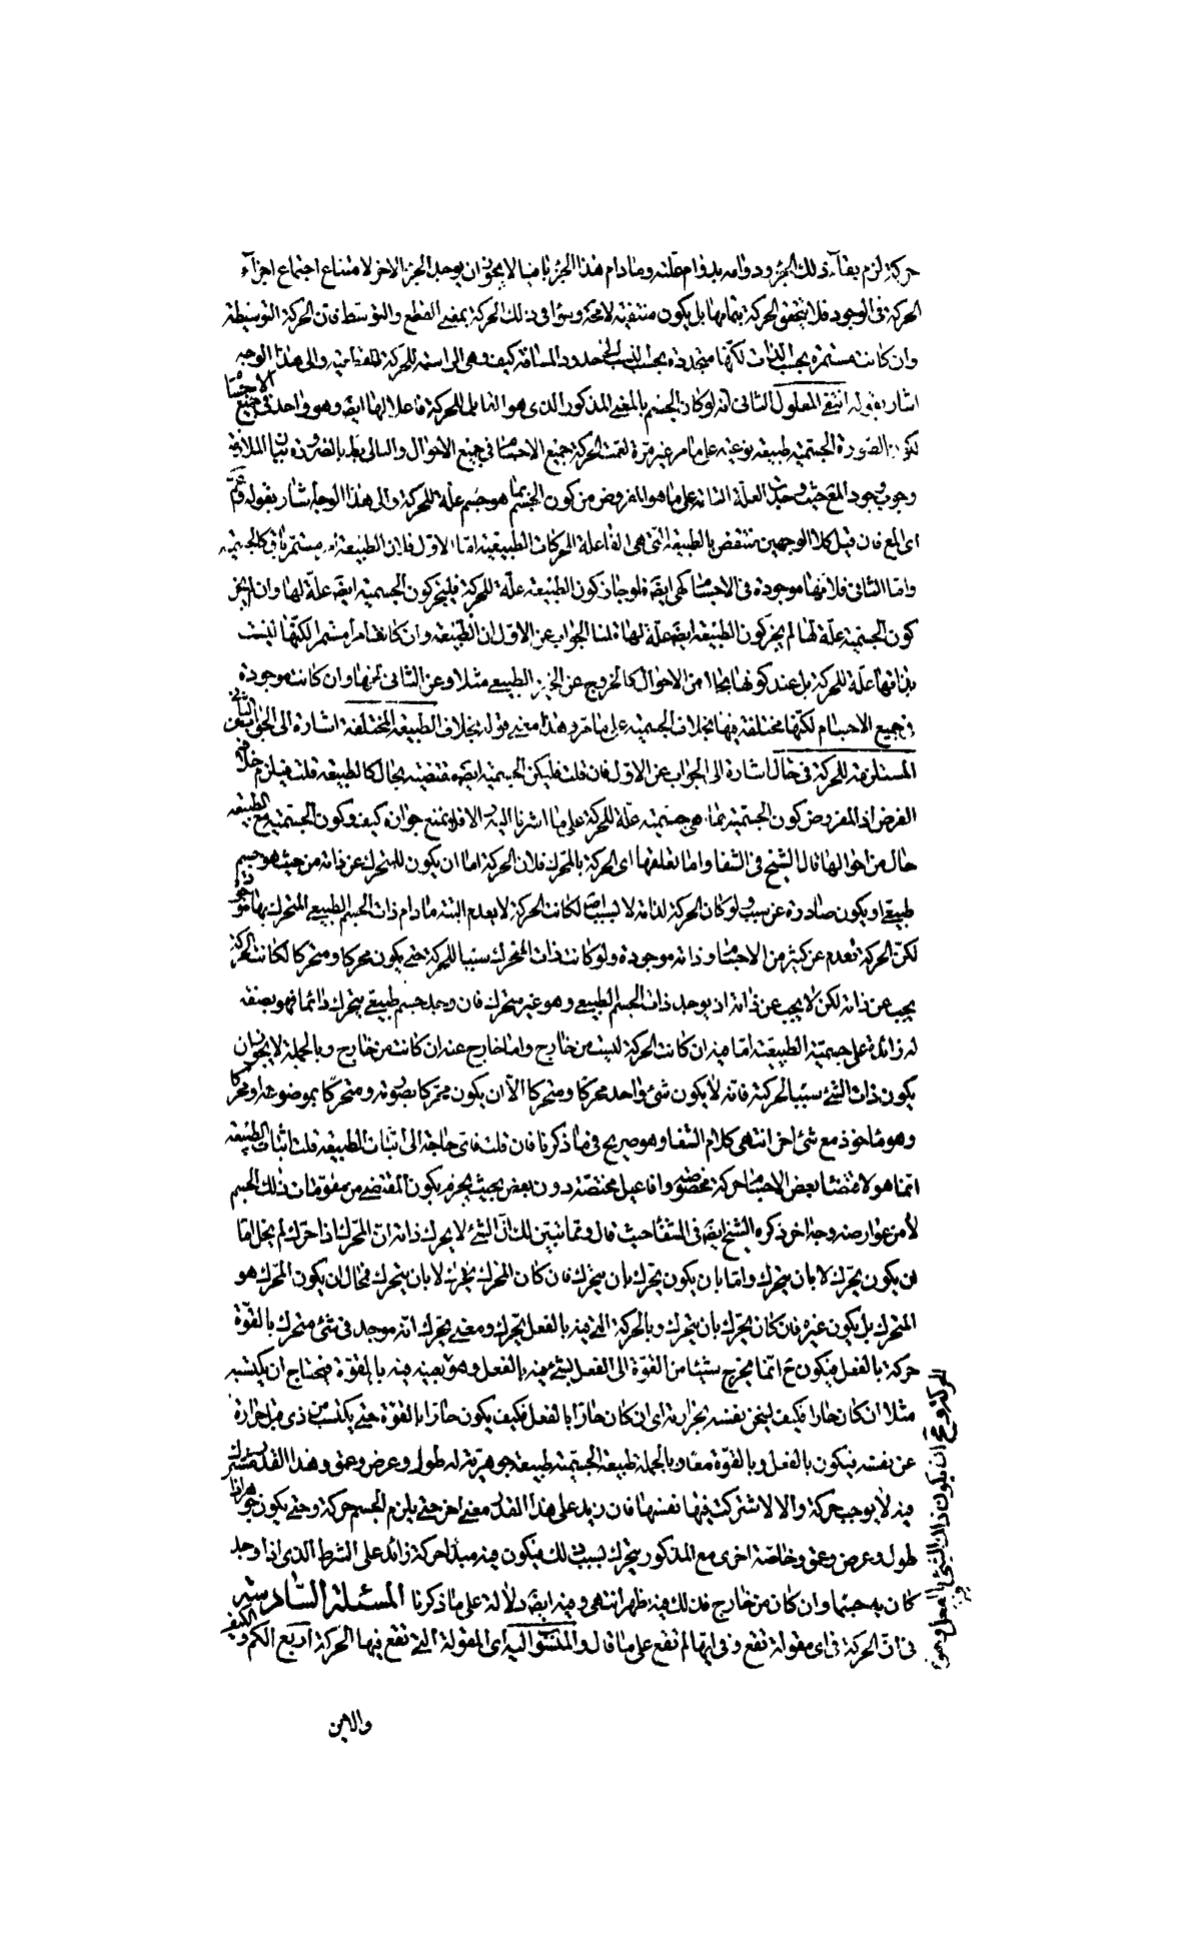 حركة لزم بقاء ذلك الجزء ودوامه بدوام علته وما دام هذا الجزء باقيا لا يجوز ان يوجد الجزء الاخر لامتناع اجتماع اجزاء
الحركة فى الوجود فلا يتحقق الحركة بتمامها بل يكون منتفية لا محة وسواء فى ذلك الحركة بمعنى القطع والتوسط فان الحركة التوسطية
وان كانت مستمرة بحسب الذات لكنها متجددة بحسب النسب الى حدود المسافة كيف وهى الراسمة للحركة القطعية والى هذا الوجه
اشار بقوله انتفى المعلول الثانى انه لو كان الجسم بالمعنى المذكور الذى هو القابل للحركة فاعلا لها ايضا وهو واحد فى جميع الاجسام
لكون الصورة الجسمية طبيعة نوعية على ما مر غير مرة لعمت الحركة جميع الاجسام فى جميع الاحوال والتالى بط بالضرورة بيان الملازمة
وجوب وجود المع حيث وجدت العلة التامة على ما هو المفروض من كون الجسم بما هو جسم علة للحركة والى هذا الوجه اشار بقوله وعم
اى المع فان قيل كلا الوجهين منتقض بالطبيعة التى هى الفاعلة للحركات الطبيعية اما الاول فلان الطبيعة امر مستمر باق كالجسمية
واما الثانى فلانها موجودة فى الاجسام كهى ايضا فلو جاز كون الطبيعة علة للحركة فليجز كون الجسمية ايضا علة لها وان لم يجز
كون الجسمية علة لها لم يجز كون الطبيعة ايضا علة لها قلنا الجواب عن الاول ان الطبيعة وان كانت امرا مستمرا لكنها ليست
بذاتها علة للحركة بل عند كونها بحال من الاحوال كالخروج عن الحيز الطبيعى مثلا وعن الثانى انها وان كانت موجودة
فى جميع الاجسام لكنها مختلفة فيها بخلاف الجسمية على ما مر وهذا معنى قوله بخلاف الطبيعة المختلفة اشارة الى الجواب عن الثانى
المستلزمة للحركة فى حال اشارة الى الجواب عن الاول فان قلت فليكن الجسمية ايضا مقتضية بحال كالطبيعة قلت فيلزم خلاف
الفرض اذ المفروض كون الجسمية بما هى جسمية علة للحركة على ما اشرنا اليه والا فلا يمتنع جوازه كيف وكون الجسمية مع الطبيعة
حال من احوالها قال الشيخ فى الشفا واما تعلقها اى الحركة بالمحرك فلان الحركة اما ان يكون للمتحرك عن ذاته من حيث هو جسم
طبيعى او يكون صادرة عن سبب ولو كان الحركة لذاته لا لسبب اصلا لكانت الحركة لا يعدم البتة ما دام ذات الجسم الطبيعى المتحرك بها موجودا
لكن الحركة تعدم عن كثير من الاجسام وذاته موجودة ولو كانت ذات المتحرك سببا للحركة حتى يكون محركا ومتحركا لكانت الحركة
يجب عن ذاته لكن لا يجب عن ذاته اذ يوجد ذات الجسم الطبيعى وهو غير متحرك فان وجد جسم طبيعى يتحرك دائما فهو بصفة
له زائدة على جسمية الطبيعية اما فيه ان كانت الحركة ليست من خارج واما خارج عنه ان كانت من خارج وبالجملة لا يجوز ان
يكون ذات الشئ سببا لحركته فانه لا يكون شئ واحد محركا ومتحركا الا ان يكون محركا بصورته ومتحركا بموضوعه او محركا
وهو ماخوذ مع شئ اخر انتهى كلام الشفا وهو صريح فى ما ذكرنا فان قلت فاى حاجة الى اثبات الطبيعة قلت اثبات الطبيعة
انما هو لاقتضاء بعض الاجسام حركة مخصوصة وافاعيل مختصة دون بعض بحيث يجزم بكون المقتضى من مقومات ذلك الجسم
لا من عوارضه وجه اخر ذكره الشيخ ايضا فى الشفا حيث قال ومما نبين لك ان الشئ لا يحرك ذاته ان المحرك اذا حرك لم يخل اما
ان يكون يحرك لا بان يتحرك واما بان يكون يحرك بان يتحرك فان كان المحرك يحرك لا بان يتحرك فمحال ان يكون المحرك هو
المتحرك بل يكون غيره فان كان يحرك بان يتحرك وبالحركة التى فيه بالفعل يحرك ومعنى يحرك انه موجد فى شئ متحرك بالقوة
حركة بالفعل فيكون ح انما يخرج شيئا من القوة الى الفعل بشئ فيه بالفعل وهو بعينه فيه بالقوة فيحتاج ان يكتسبه
مثلا ان كان حارا فكيف يسخن نفسه بحرارته اى ان كان حارا بالفعل فكيف يكون حارا بالقوة حتى يكتسب من ذى قبل حرارة
عن نفسه فيكون بالفعل وبالقوة معا وبالجملة طبيعة الجسمية طبيعة جوهرية له طول وعرض وعمق وهذا القدر مشترك
فيه لا يوجب حركة والا لاشتركت فيها نفسها فان زيد على هذا القدر معنى اخر حتى يلزم الجسم حركة وحتى يكون جوهرا ذا
طول وعرض وعمق وخاصة اخرى مع المذكور يتحرك بسبب ذلك فيكون فيه مبدأ حركة زائد على الشرط الذى اذا وجد
كان به جسما وان كان من خارج فذلك فيه ظهر انتهى وفيه ايضا دلالة على ما ذكرنا المسئلة السادسة
فى ان الحركة فى اى مقولة تقع وفى ايها لم تقع على ما قال والمنسوب اليه اى المقولة التى تقع فيها الحركة اربع الكم والكيف
الحركة وح ان يكون ذلك الشئ بالفعل وهو
والاين